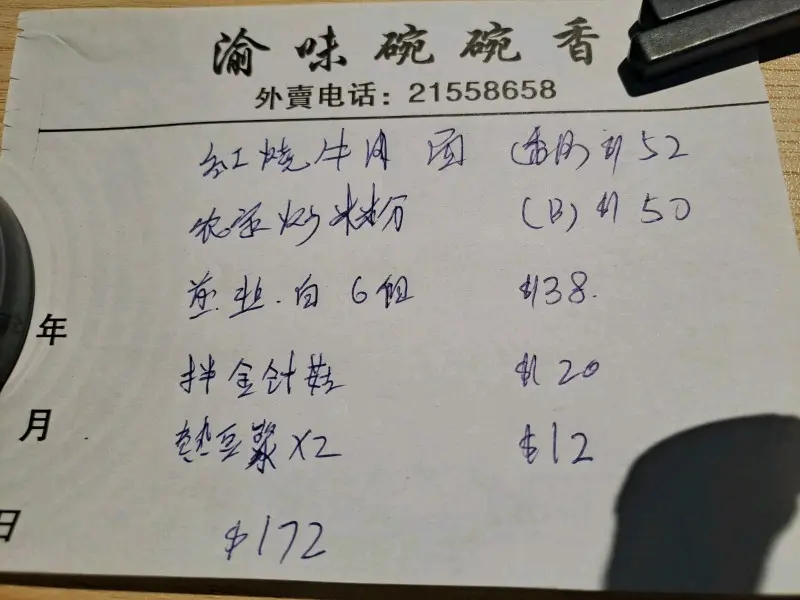 渝味碗碗香
外賣电话：21558658
红烧牛肉面 $52
农家炒米粉 (B) $50
煎韭.白 6个 $38.
拌金针菇 $20
热豆浆 X2 $12
$172
年
月
日